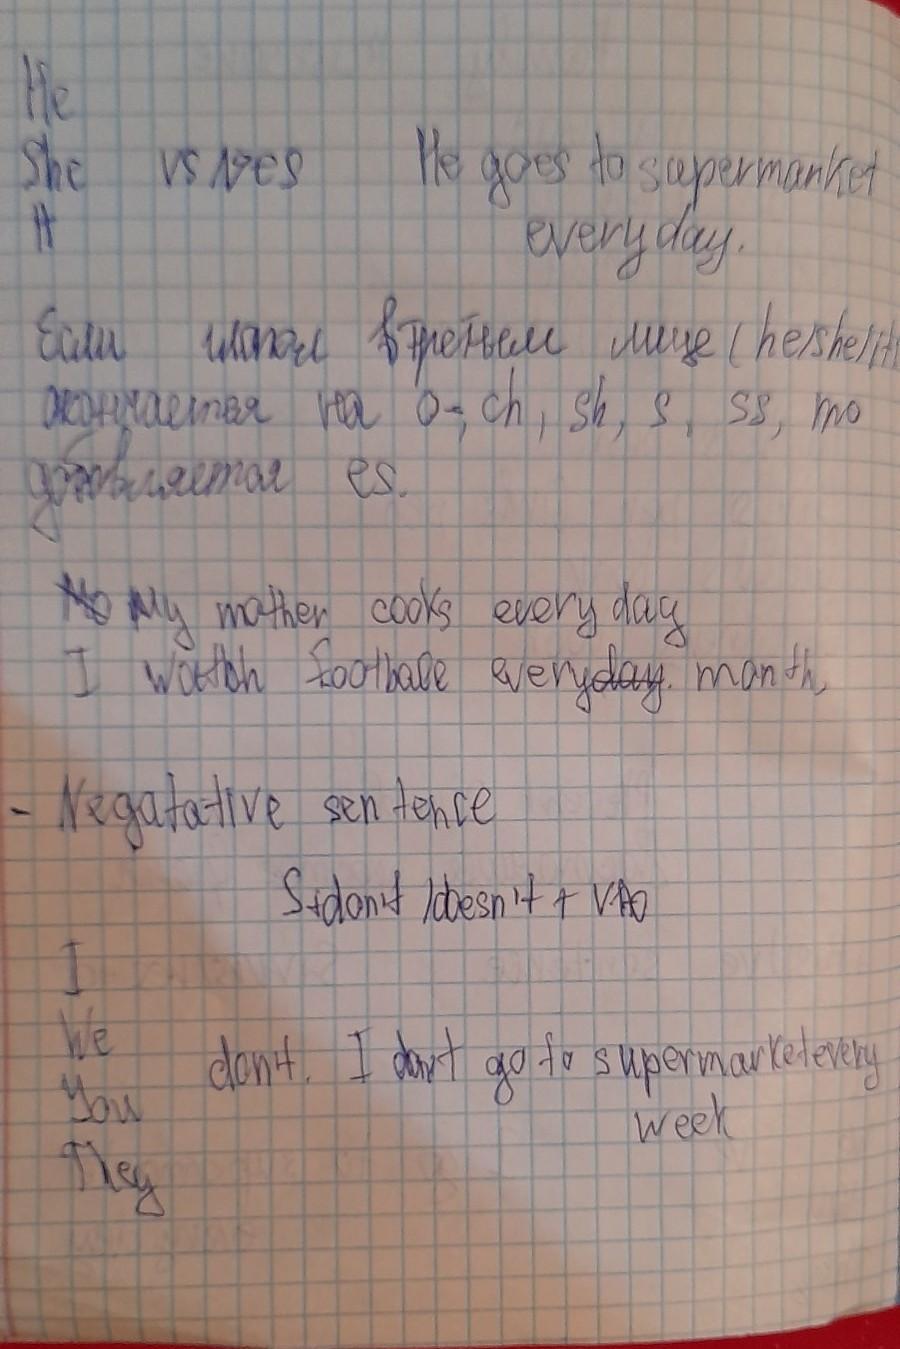 He
She vs ves He goes to supermanket
It every day.
Если глагол в третьем лице (he/she/it
оканчается на o-, ch, sh, s, ss, то
добовляется es.
My mother cooks every day
I wattch football every month,
- Negatative sentence
S+don't /doesn't + V
I
We
You don't. I don't go to supermarket every
week
They